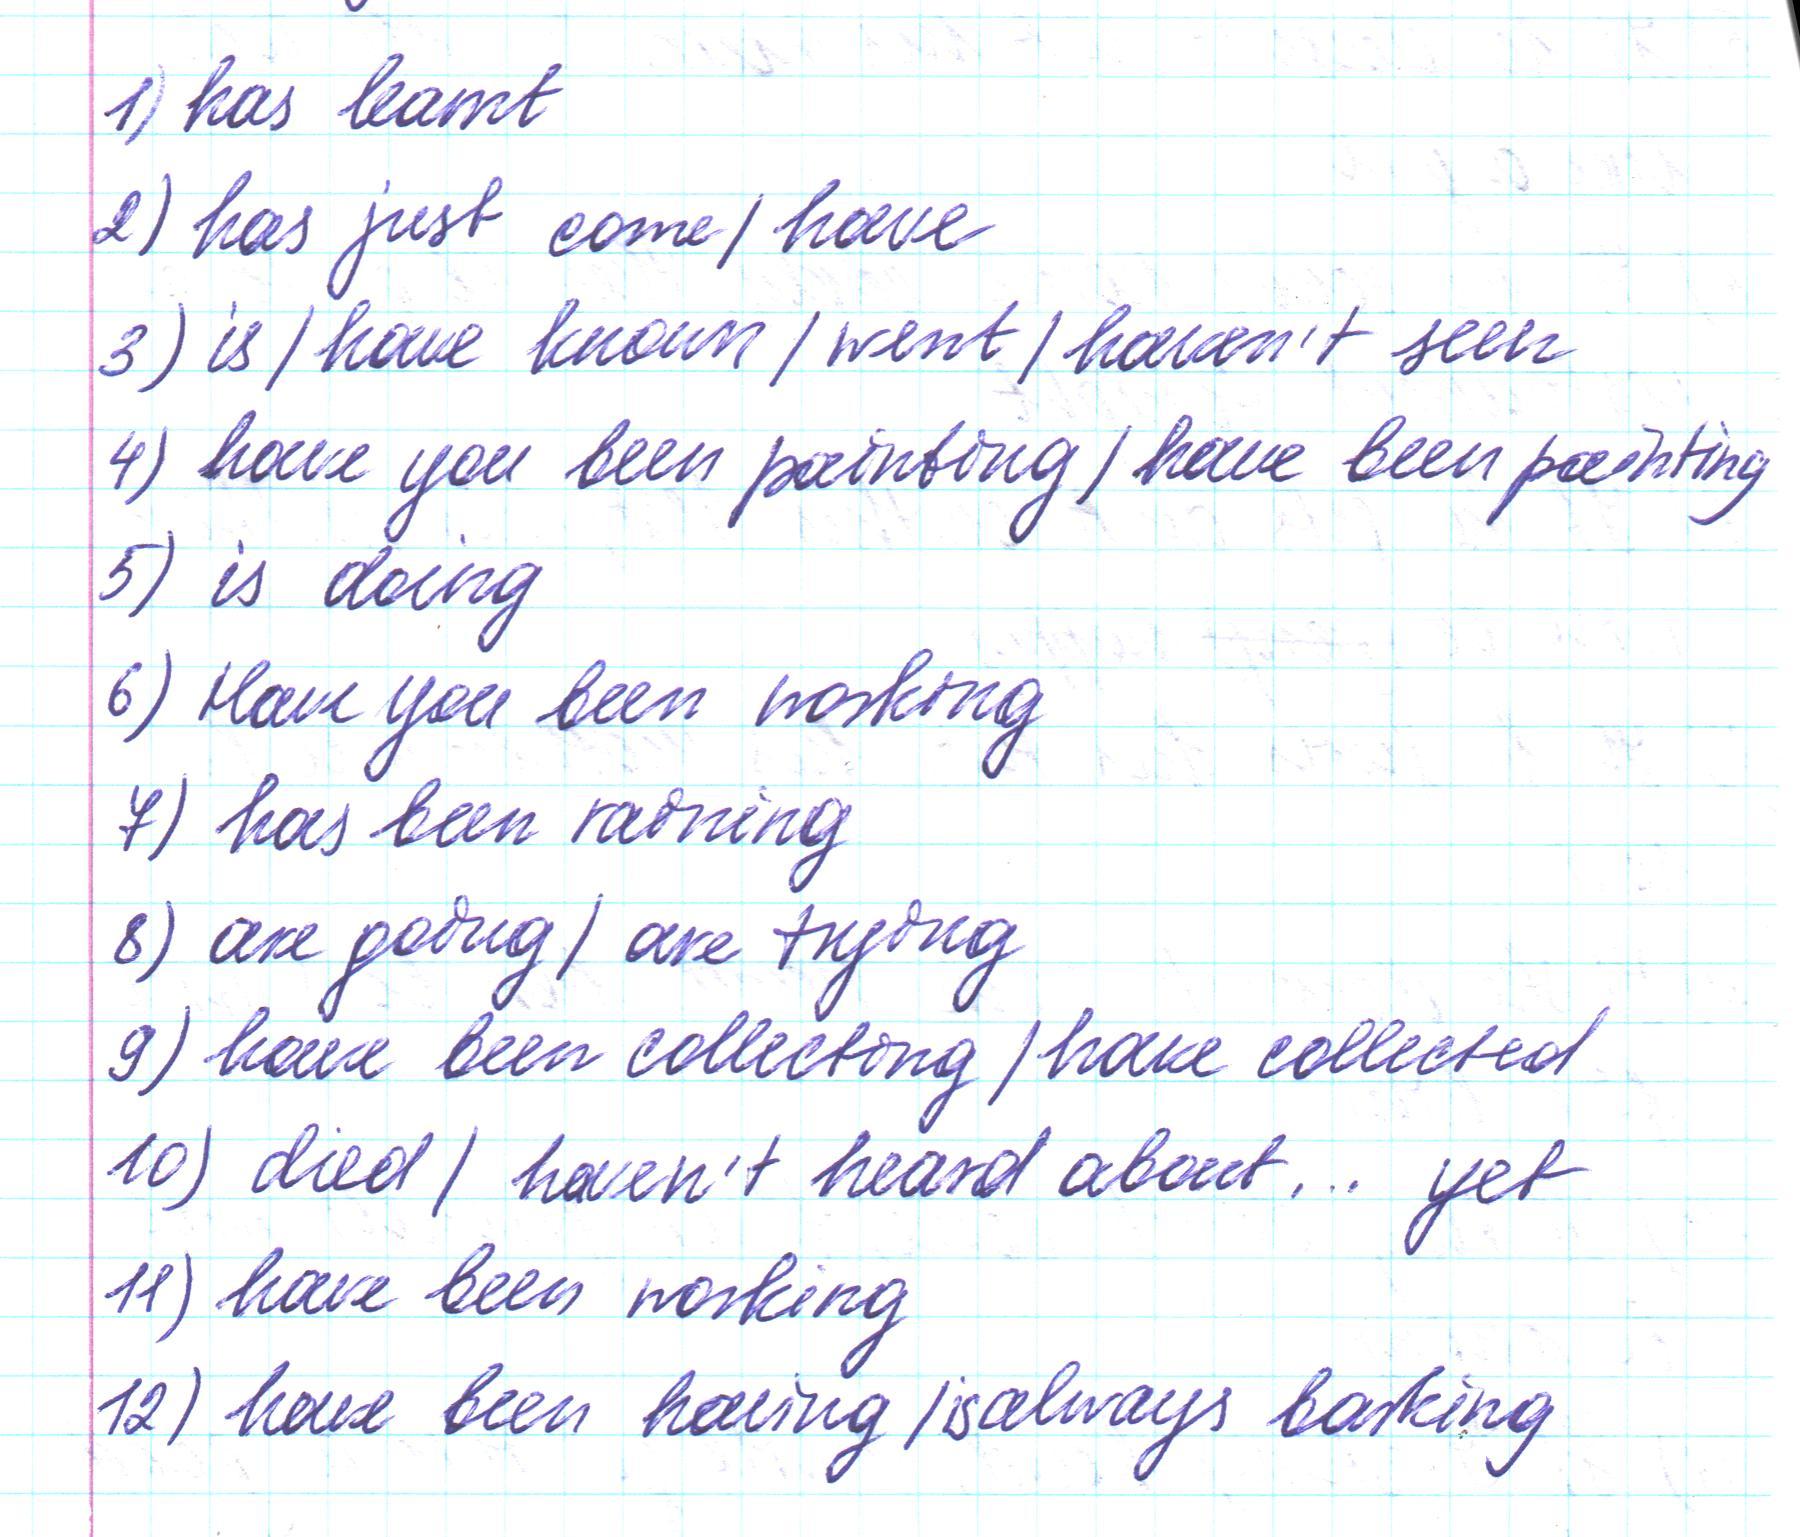 1) has learnt
2) has just come / have
3) is / have known / went / haven't seen
4) have you been painting / have been painting
5) is doing
6) Have you been working
7) has been raining
8) are going / are trying
9) have been collecting / have collected
10) died / haven't heard about... yet
11) have been working
12) have been having / is always barking